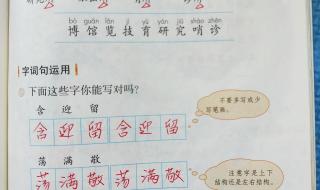 bó guǎn lǎn jì yù yán jiū shào zhěn
博 馆 览 技 育 研 究 哨 诊
字词句运用
下面这些字你能写对吗?
含 迎 留
含 迎 留 含 迎 留
不要多写或少写笔画。
荡 满 敬
荡 满 敬 荡 满 敬
注意字是上下结构还是左右结构。